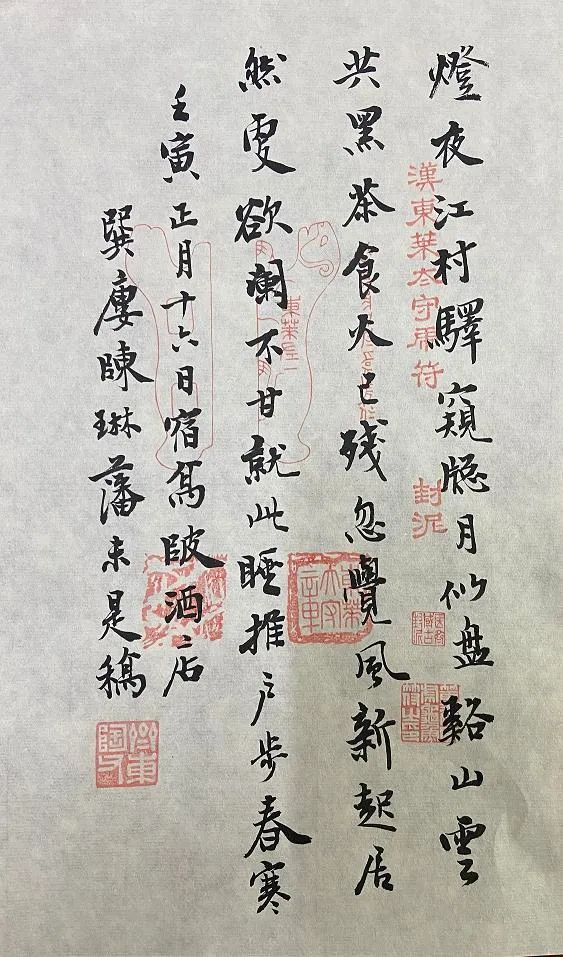 燈夜江村驛窺牕月似盘谿山雲
共黑茶食火已殘忽覺風新起居
然更欲闌不甘就此睡推户步春寒
壬寅正月十六日宿舄陂酒店
巽廔陳琳藩未是稿
漢東萊太守虎符
封泥